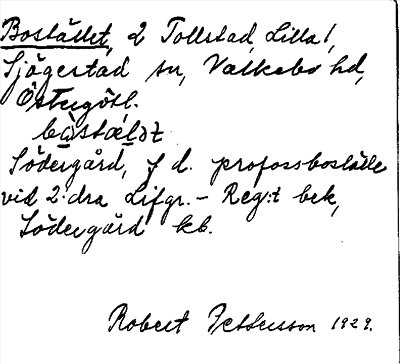 Bostället, 2 Tollstad, Lilla!,
Sjögestad sn, Valkebo hd,
Östergötl.
bo̠stæl̠ət
Södergård, f d. profossboställe
vid 2:dra Lifgr.- Reg:t bek,
Södergård kb.
Robert Pettersson 1929.